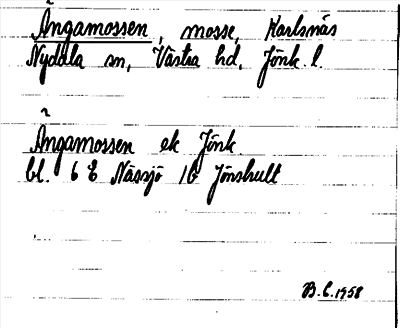 Ångamossen, mosse, Karlsnäs
Nydala sn, Västra hd, Jönk. l.
Ångamossen ek Jönk.
bl. 6 E Nässjö 1b Jönshult
B.C. 1958